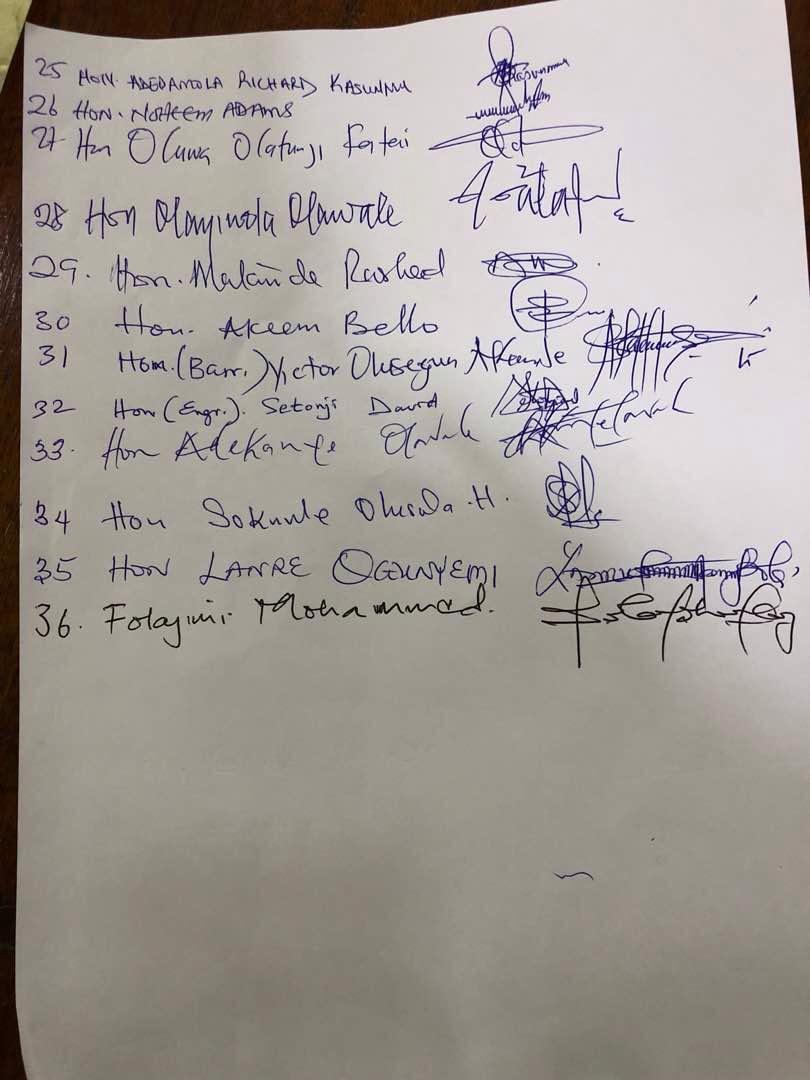 25 HON. ADEDAMOLA RICHARD KASUNMU Kasunmu
26 HON. NOHEEM ADAMS
27 Hon Oluwa Olatunji Fatai
28 Hon Olayinola Olawale
29. Hon. Makinde Rasheed
30 Hon. Akeem Bello
31 Hon. (Barr.) Victor Olusegun Akande
32 Hon (Engr.). Setonji David
33. Hon Adekanye Olawale
34 Hon Sokunle Olusola .H.
35 HON LANRE OGUNYEMI
36. Folajimi Mohammed.